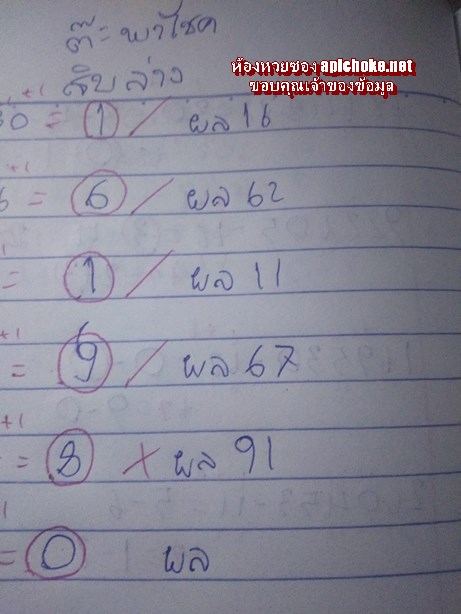 ต๊ะ พาโชค
ห้องหวยซอง apichoke.net
ขอบคุณเจ้าของข้อมูล
สิบล่าง
+1
0 = 1 / ผล 16
+1
= 6 / ผล 62
= 1 / ผล 11
+1
= 9 / ผล 67
+1
= 8 × ผล 91
= 0 ผล